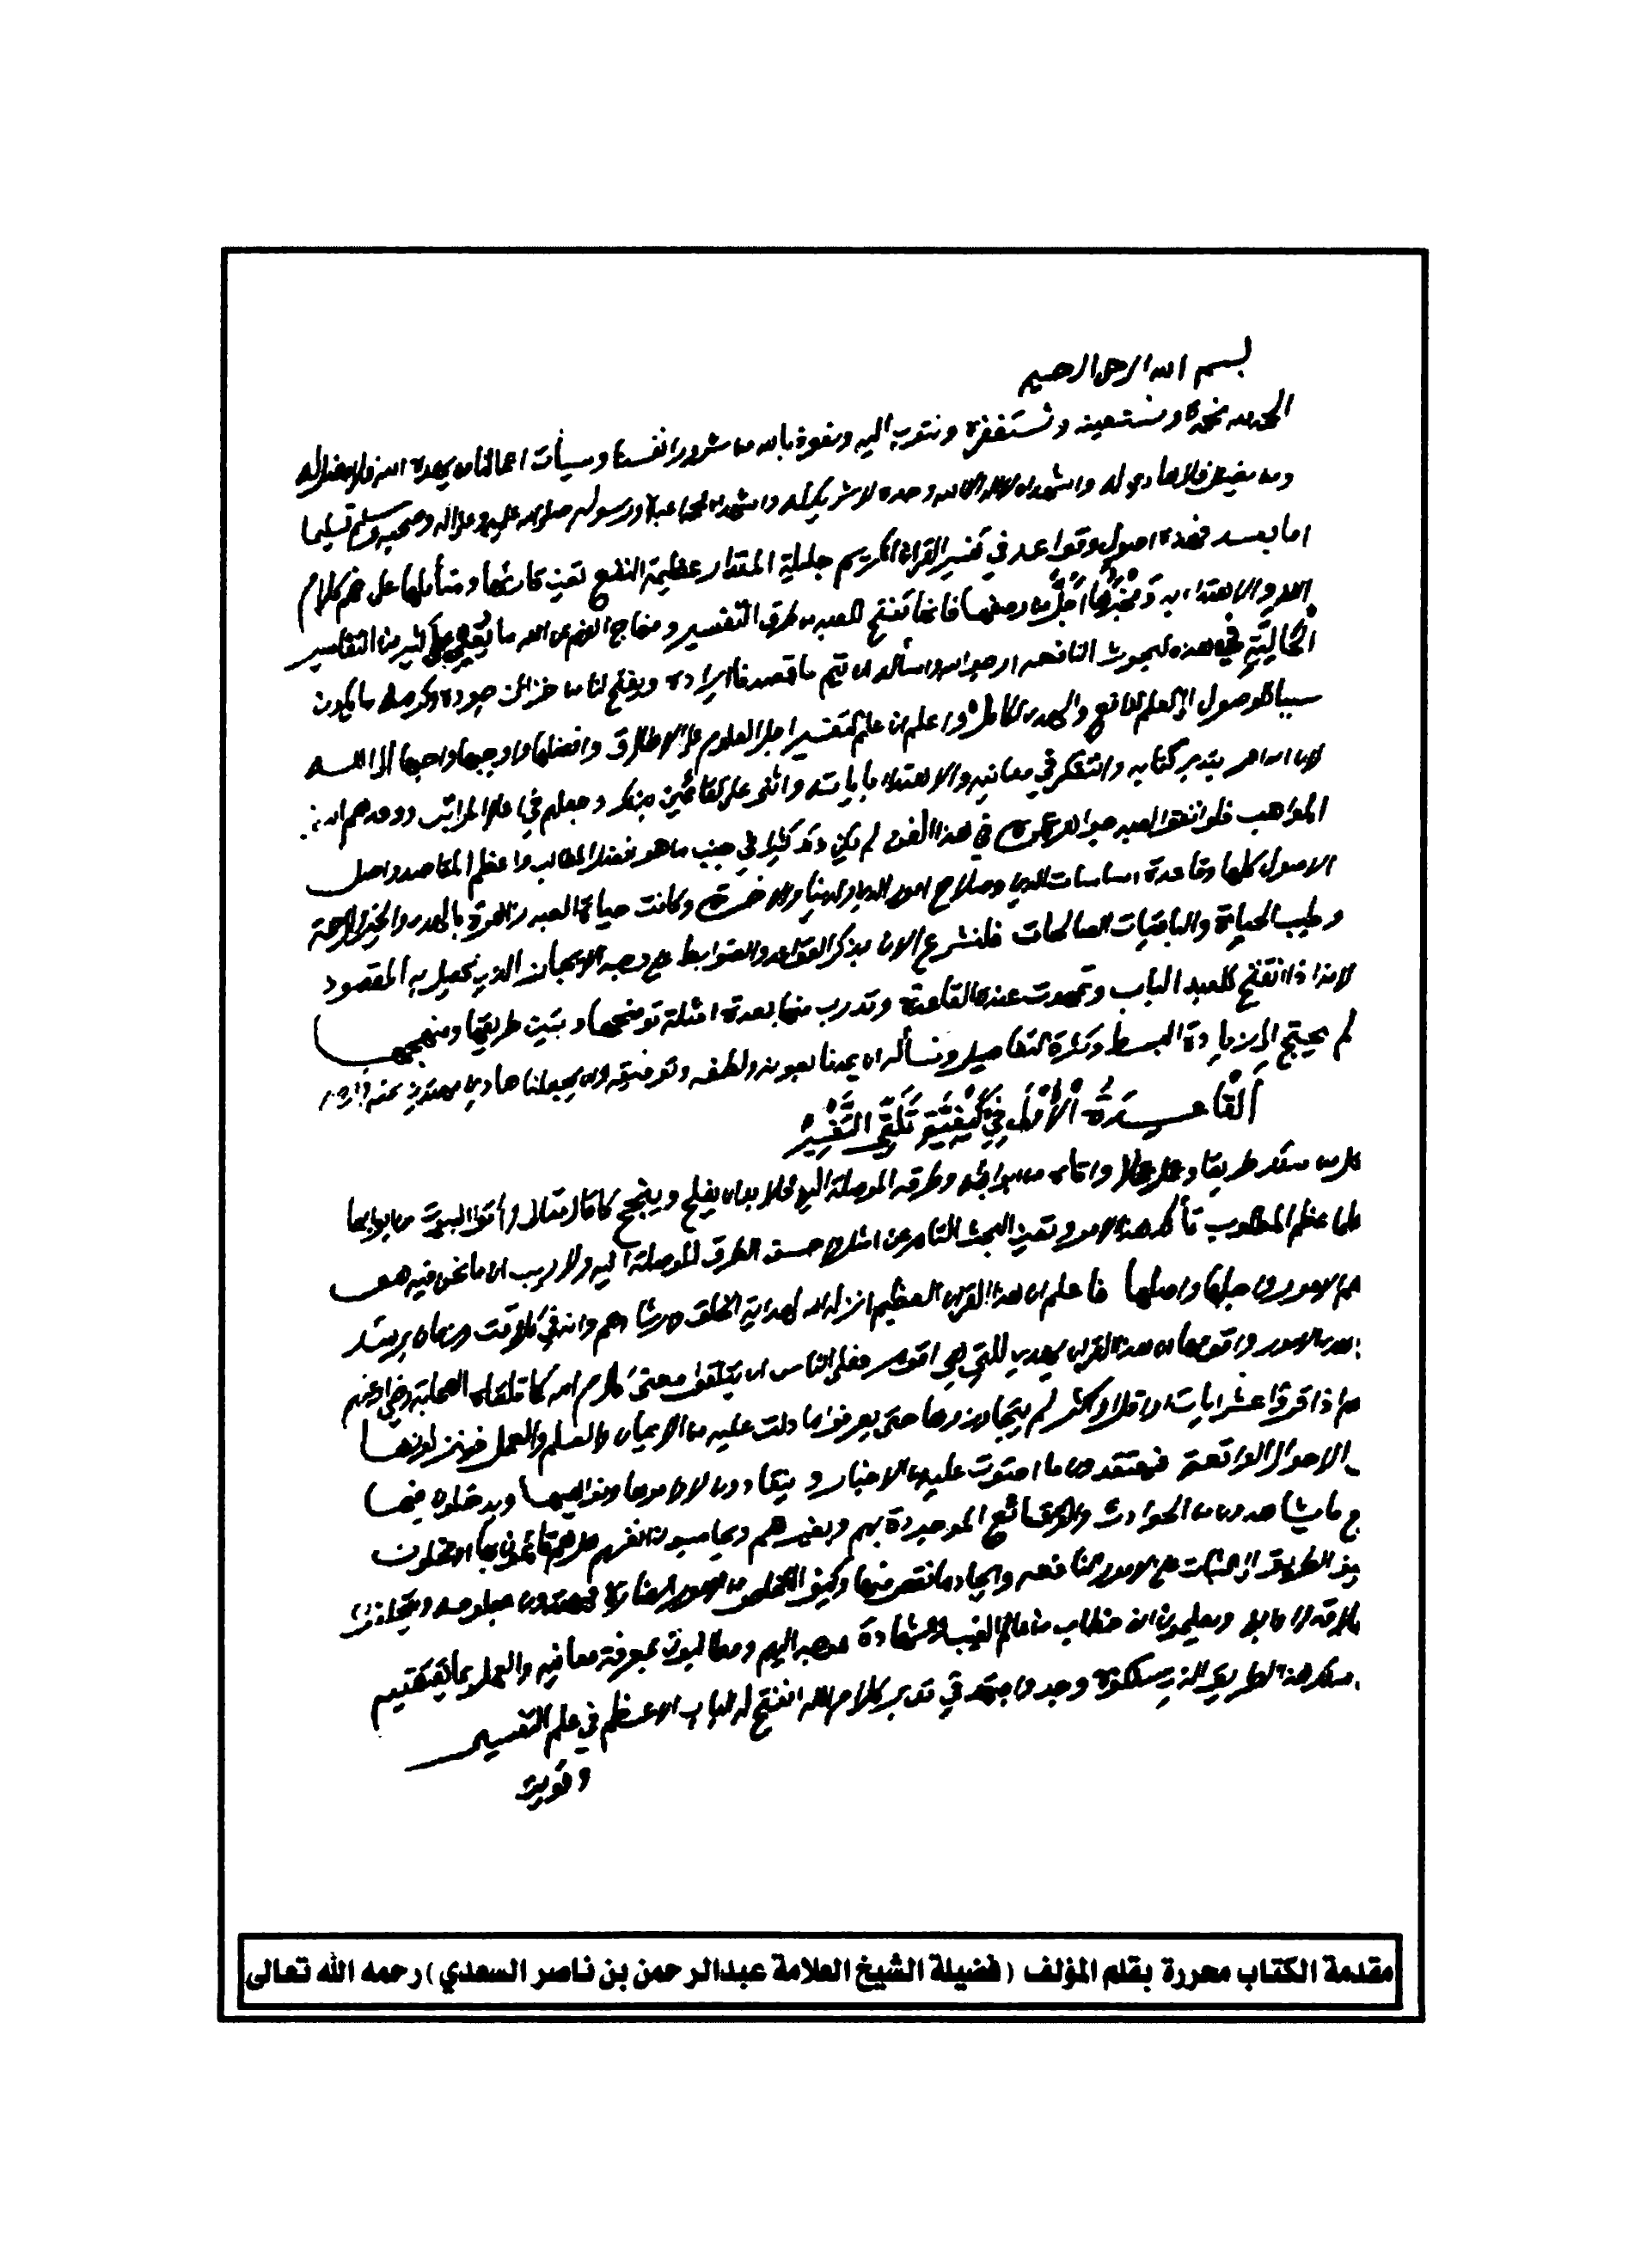 بسم الله الرحمن الرحيم
الحمد لله نحمده ونستعينه ونستغفره ونتوب اليه ونعوذ بالله من شرور انفسنا وسيأت اعمالنا من يهده الله فلا مضل له
ومن يضلل فلا هادي له واشهد ان لا اله الا الله وحده لا شريك له واشهد ان محمدا عبده ورسوله صلى الله عليه وعلى اله وصحبه وسلم تسليما
اما بعد فهذه اصول وقواعد في تفسير القران الكريم جليلة المقدار عظيمة النفع تعين قارئها ومتأملها على فهم كلام
الله والاهتداء به وَمَخْبَرُها اَجَلُّ من وصفها فانها تفتح للعبد من طرق التفسير ومنهاج الفهم عن الله ما يُغْنِي عن كثير من التفاسير
الْخَالِيَّةِ من هذه البحوث النافعه ارجو الله واسأله ان يتم ما قصدنا ايراده ويفتح لنا من خزائن جوده وكرمه ما يكون
سببا للوصول الى العلم النافع والهدى الكامل واعلم ان علم التفسير اجل العلوم على الاطلاق وافضلها واوجبها واحبها الى الله
لان الله امر بتدبر كتابه والتفكر في معانيه والاهتداء بأياته واثنى على القائمين بذلك وجعلهم في اعلا المراتب ووعدهم اسنى
المواهب فلو انفق العبد جواهر عمره في هذا الفن لم يكن ذلك كثيرا في جنب ما هو افضل المطالب واعظم المقاصد واصل
الاصول كلها وقاعدة اساسات الدين وصلاح امور الدين والدنيا والاخرة وكانت حياة العبد زاهرة بالهدى والخير والرحمة
وطيب الحياة والباقيات الصالحات فلنشرع الان بذكر القواعد والضوابط على وجه الايجاز الذي يحصل به المقصود
لانه اذا انفتح للعبد الباب وتمهدت عنده القاعدة وتدرب منها بعدة امثلة توضحها وتبين طريقها ومنهجها
لم يحتج الى زيادة البسط وكثرة التفاصيل ونسأله ان يمدنا بعونه ولطفه وتوفيقه وان يجعلنا هادين مهتدين بمنه
اَلْقَاعِدَةُ الْأُوْلَى فِي كَيْفِيَّةِ تَلَقِّي التَّفْسِيْرِ
كل من سلك طريقا وعمل عملا واتاه من ابوابه وطرقه الموصلة اليه فلا بد ان يفلح وينجح كما قال تعالى وأتوا البيوت من ابوابها
كلما عظم المطلوب تأكد هذا الامر وتعين البحث التام عن امثل واحسن الطرق الموصلة اليه ولا ريب ان ما نحن فيه هو
اهم الامور واجلها واصلها فاعلم ان هذا القران العظيم انزله الله لهداية الخلق وارشادهم وانه في كل وقت وزمان يرشد
الى اهدى الامور واقومها ان هذا القران يهدي للتي هي اقوم فعلى الناس ان يتلقوا معنى كلام الله كما تلقاه الصحابة رضي الله عنهم
فانهم اذا قرؤا عشر ايات او اقل او اكثر لم يتجاوزوها حتى يعرفوا ما دلت عليه من الايمان والعلم والعمل فينزلونها
على الاحوال الواقعة فيعتقدون ما احتوت عليه من الاخبار وينقادون لاوامرها ونواهيها ويدخلون فيها
جميع ما يشاهدون من الحوادث والوقائع الموجودة بهم وبغيرهم ويحاسبون انفسهم هل هم قائمون بها او مخلون
وكيف الطريق الى الثبات على الامور النافعه وايجاد ما نقص منها وكيف التخلص من الامور الضارة فيهتدون بعلومه ويتخلقون
باخلاقه وادابه ويعلمون انه خطاب من عالم الغيب والشهادة موجه اليهم ومطالبون بمعرفة معانيه والعمل بما يقتضيه
فمن سلك هذا الطريق الذي سلكوه وجد واجتهد في تدبر كلام الله انفتح له الباب الاعظم في علم التفسير
وقويت
مقدمة الكتاب محررة بقلم المؤلف (فضيلة الشيخ العلامة عبدالرحمن بن ناصر السعدي) رحمه الله تعالى